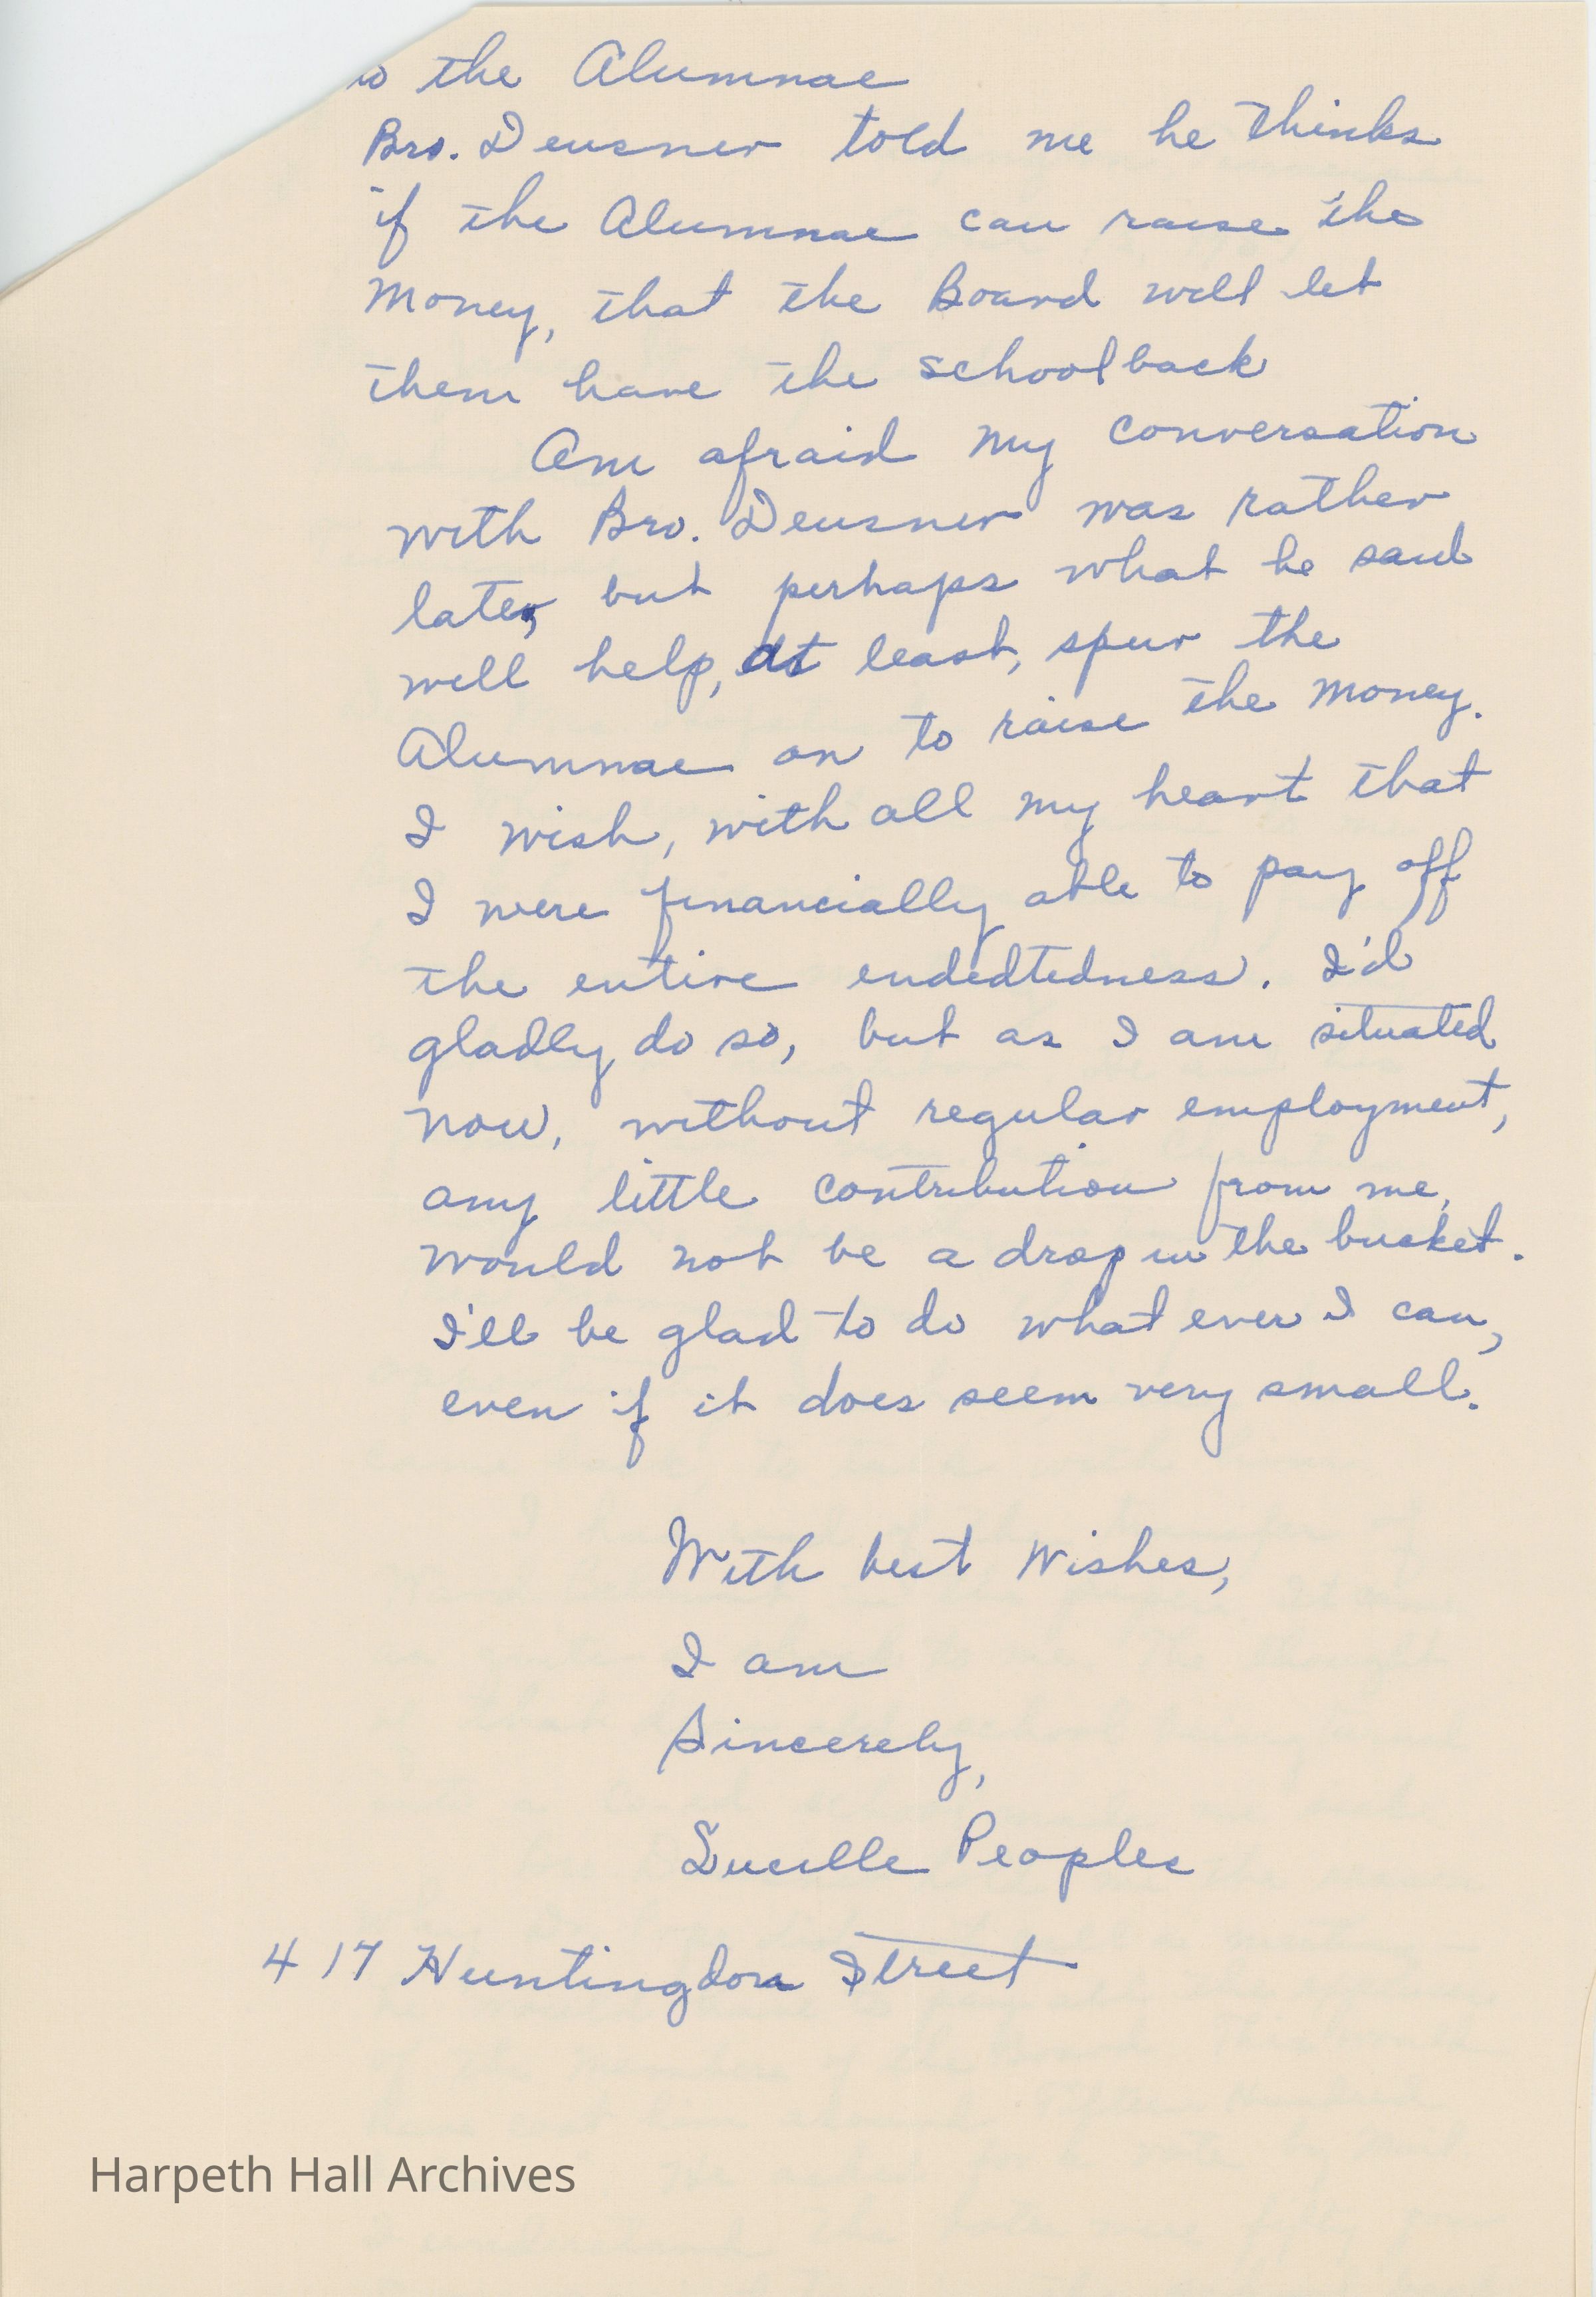 to the Alumnae
Bro. Deusner told me he thinks
if the Alumnae can raise the
Money, that the Board will let
them have the school back
Am afraid my conversation
with Bro. Deusner was rather
late, but perhaps what he said
will help, at least, spur the
Alumnae on to raise the money.
I wish, with all my heart that
I were financially able to pay off
the entire endedtedness. I'd
gladly do so, but as I am situated
now, without regular employment,
any little contribution from me,
would not be a drop in the bucket.
I'll be glad to do what ever I can,
even if it does seem very small.
With best Wishes,
I am
Sincerely,
Lucille Peoples
417 Huntingdon Street
Harpeth Hall Archives